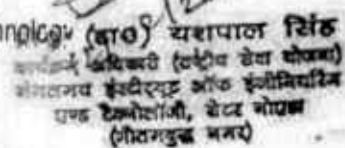 nology (डा०) यशपाल सिंह
कार्यक्रम अधिकारी (राष्ट्रीय सेवा योजना)
मंगलमय इंस्टीट्यूट ऑफ इंजीनियरिंग
एण्ड टैक्नोलॉजी, ग्रेटर नोएडा
(गौतमबुद्ध नगर)